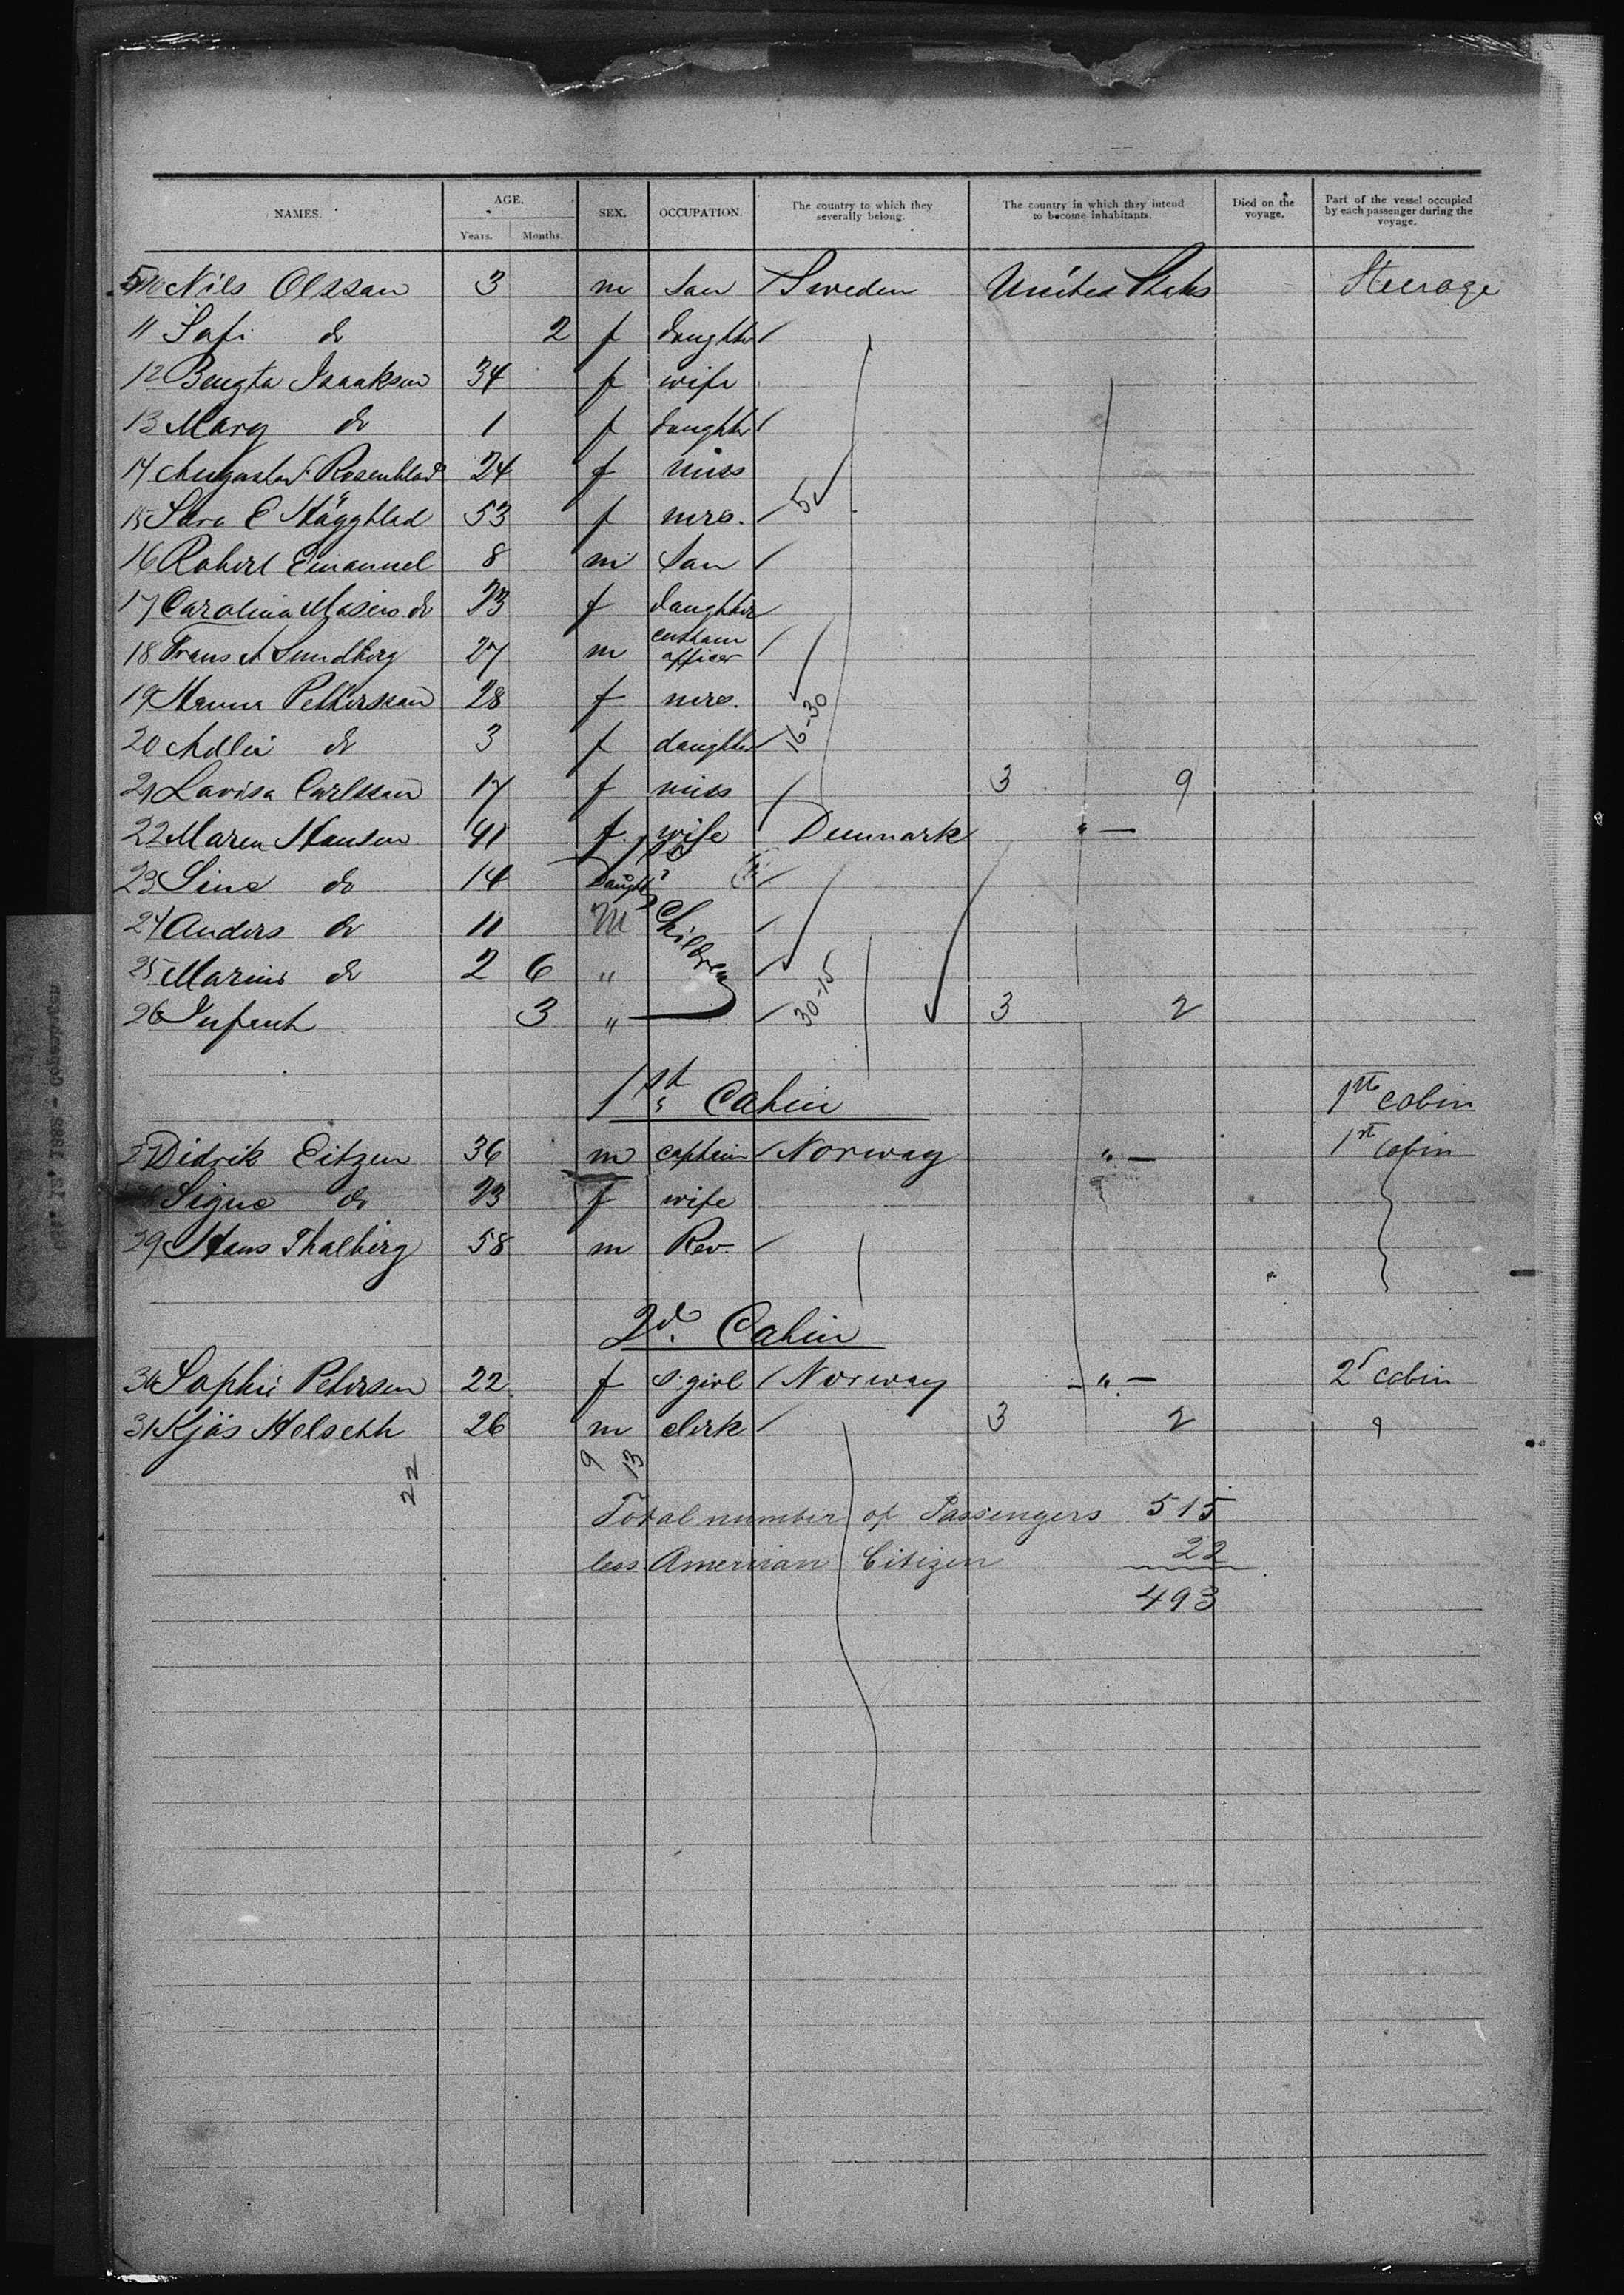 NAMES. AGE. SEX. OCCUPATION. The country to which they severally belong. The country in which they intend to become inhabitants. Died on the voyage. Part of the vessel occupied by each passenger during the voyage.
Years. Months.
510 Nils Olsson 3 m Son Sweden United States Steerage
11 Sofi do 2 f daughter
12 Bengta Isaakson 34 f wife
13 Mary do 1 f daughter
14 Augusta Rosenblad 24 f miss
15 Sara E Häggblad 53 f mrs. 5
16 Robert Emanuel 8 m Son
17 Carolina do 23 f daughter
18 Frans A Sundberg 27 m custom officer
19 Hanna Petterson 28 f mrs.
20 do 3 f daughter 16-30
21 Lovisa Carlsson 17 f miss 3 9
22 Maren Hansen 41 f. wife Denmark " —
23 Sine do 14 Daught
24 Anders do 11 M Children
25 Marius do 2 6 "
26 Infant 3 " 30-15 3 2
1st Cabin 1st cabin
27 Didrik Eitzen 36 m captain Norway " — 1st Cabin
28 Signe do 23 f wife
29 Hans Thalberg 58 m Rev.
2d. Cabin
30 Sophie Petersen 22 f s. girl Norway — " — 2d cabin
31 Kjös Helseth 26 m clerk 3 2
22 9 13
Total number of Passengers 515
less American Citizen 22
493